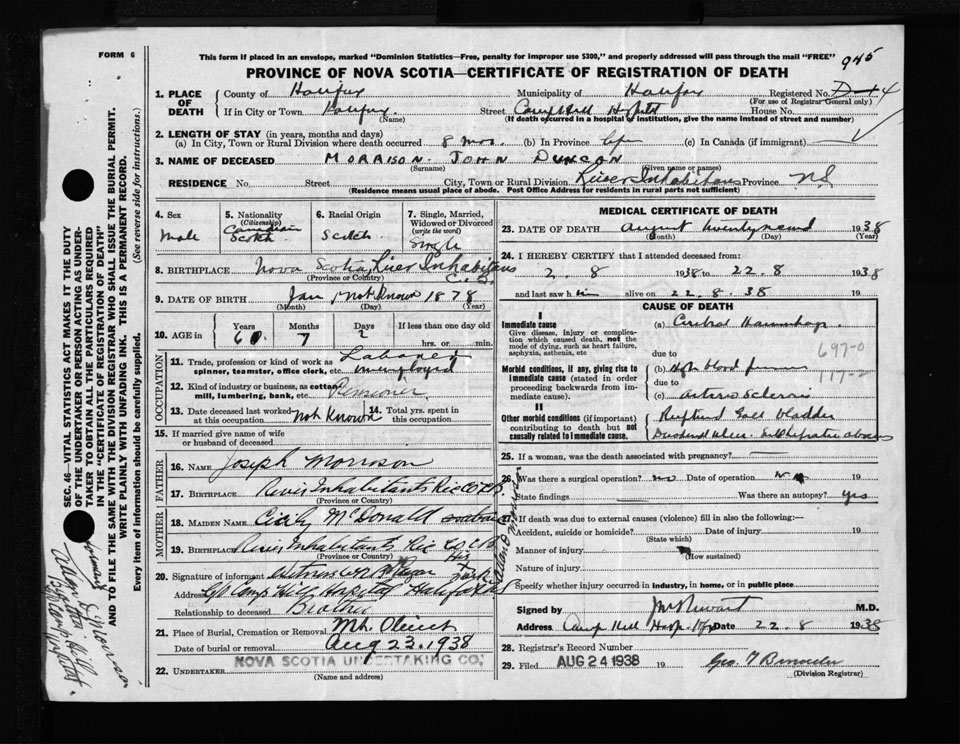 FORM 6
This form if placed in an envelope, marked "Dominion Statistics—Free, penalty for improper use $300," and properly addressed will pass through the mail "FREE"
945
PROVINCE OF NOVA SCOTIA—CERTIFICATE OF REGISTRATION OF DEATH
1. PLACE OF DEATH
County of Halifax Municipality of Halifax Registered No. 4
(For use of Registrar General only)
If in City or Town Halifax Street Camp Hill Hospital House No.
(Name) (If death occurred in a hospital or institution, give the name instead of street and number)
2. LENGTH OF STAY (in years, months and days)
(a) In City, Town or Rural Division where death occurred 8 mos. (b) In Province life (c) In Canada (if immigrant)
3. NAME OF DECEASED MORRISON JOHN DUNCAN
(Surname) (Given name or names)
RESIDENCE No. Street City, Town or Rural Division River Inhabitans Province N.S
(Residence means usual place of abode. Post Office Address for residents in rural parts not sufficient)
4. Sex
Male
5. Nationality
(Citizenship)
Canadian
Scotch
6. Racial Origin
Scotch
7. Single, Married, Widowed or Divorced
(write the word)
Single
8. BIRTHPLACE Nova Scotia, River Inhabitans
(Province or Country)
C.B.
9. DATE OF BIRTH Jan not known 1878
(Month) (Day) (Year)
10. AGE in
Years Months Days If less than one day old
60 7 hrs. or min.
OCCUPATION
11. Trade, profession or kind of work as spinner, teamster, office clerk, etc. Laborer
unemployed
12. Kind of industry or business, as cotton mill, lumbering, bank, etc. Pensioner
13. Date deceased last worked at this occupation Not Known
14. Total yrs. spent in this occupation
15. If married give name of wife or husband of deceased
FATHER
16. NAME Joseph Morrison
17. BIRTHPLACE River Inhabitants Ric Co C.B.
(Province or Country)
MOTHER
18. MAIDEN NAME Cicily McDonald
19. BIRTHPLACE River Inhabitants Ric Co C B
(Province or Country)
20. Signature of informant Witness
His
mark
Address C/O Camp Hill Hospital Halifax NS
Relationship to deceased Brother
21. Place of Burial, Cremation or Removal Mt. Olivet
Date of burial or removal Aug 23, 1938
22. UNDERTAKER NOVA SCOTIA UNDERTAKING CO.
(Name and address)
MEDICAL CERTIFICATE OF DEATH
23. DATE OF DEATH August twenty second 1938
(Month) (Day) (Year)
24. I HEREBY CERTIFY that I attended deceased from:
2. 8 1938 to 22. 8 1938
and last saw him alive on 22. 8. 38 19
CAUSE OF DEATH
I
Immediate cause
Give disease, injury or complication which caused death, not the mode of dying, such as heart failure, asphyxia, asthenia, etc
(a) Cerebral Haemorrhage
due to
Morbid conditions, if any, giving rise to immediate cause (stated in order proceeding backwards from immediate cause).
(b) High blood pressure
due to
(c) Arterio Sclerosis
697-0
II
Other morbid conditions (if important) contributing to death but not causally related to immediate cause.
Ruptured Gall bladder
Duodenal ulcer. Subhepatic abscess
25. If a woman, was the death associated with pregnancy?
26. Was there a surgical operation? no Date of operation 19
State findings Was there an autopsy? yes
27. If death was due to external causes (violence) fill in also the following:
Accident, suicide or homicide? Date of injury 19
(State which)
Manner of injury
(How sustained)
Nature of injury
Specify whether injury occurred in industry, in home, or in public place
Signed by M.D.
Address Camp Hill Hosp. Hfx Date 22. 8 1938
28. Registrar's Record Number
29. Filed AUG 24 1938 19
(Division Registrar)
SEC. 46—VITAL STATISTICS ACT MAKES IT THE DUTY
OF THE UNDERTAKER OR PERSON ACTING AS UNDERTAKER
TO OBTAIN ALL THE PARTICULARS REQUIRED
IN THE "CERTIFICATE OF REGISTRATION OF DEATH"
AND TO FILE THE SAME WITH THE DIVISION REGISTRAR WHO SHALL ISSUE THE BURIAL PERMIT.
WRITE PLAINLY WITH UNFADING INK. THIS IS A PERMANENT RECORD.
Every item of information should be carefully supplied. (See reverse side for instructions.)